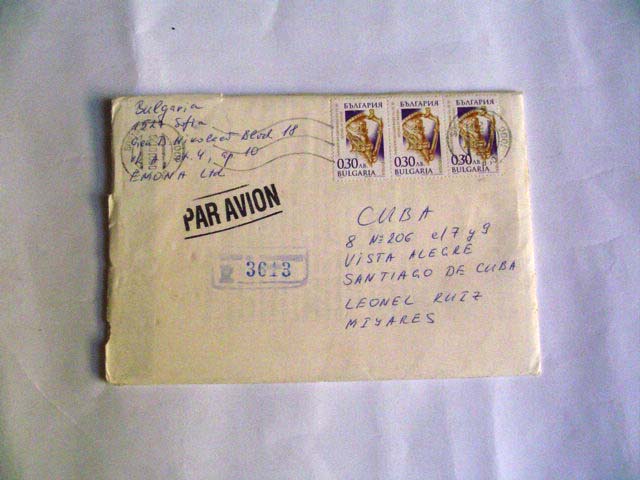 Bulgaria
Sofia
Blvd 18
ap 10
EMONA Ltd
БЪЛГАРИЯ
0.30 ЛВ.
BULGARIA
БЪЛГАРИЯ
0.30 ЛВ.
BULGARIA
БЪЛГАРИЯ
0.30 ЛВ.
BULGARIA
PAR AVION
R 3613
CUBA
8 № 206 e/7 y 9
VISTA ALEGRE
SANTIAGO DE CUBA
LEONEL RUIZ
MIYARES